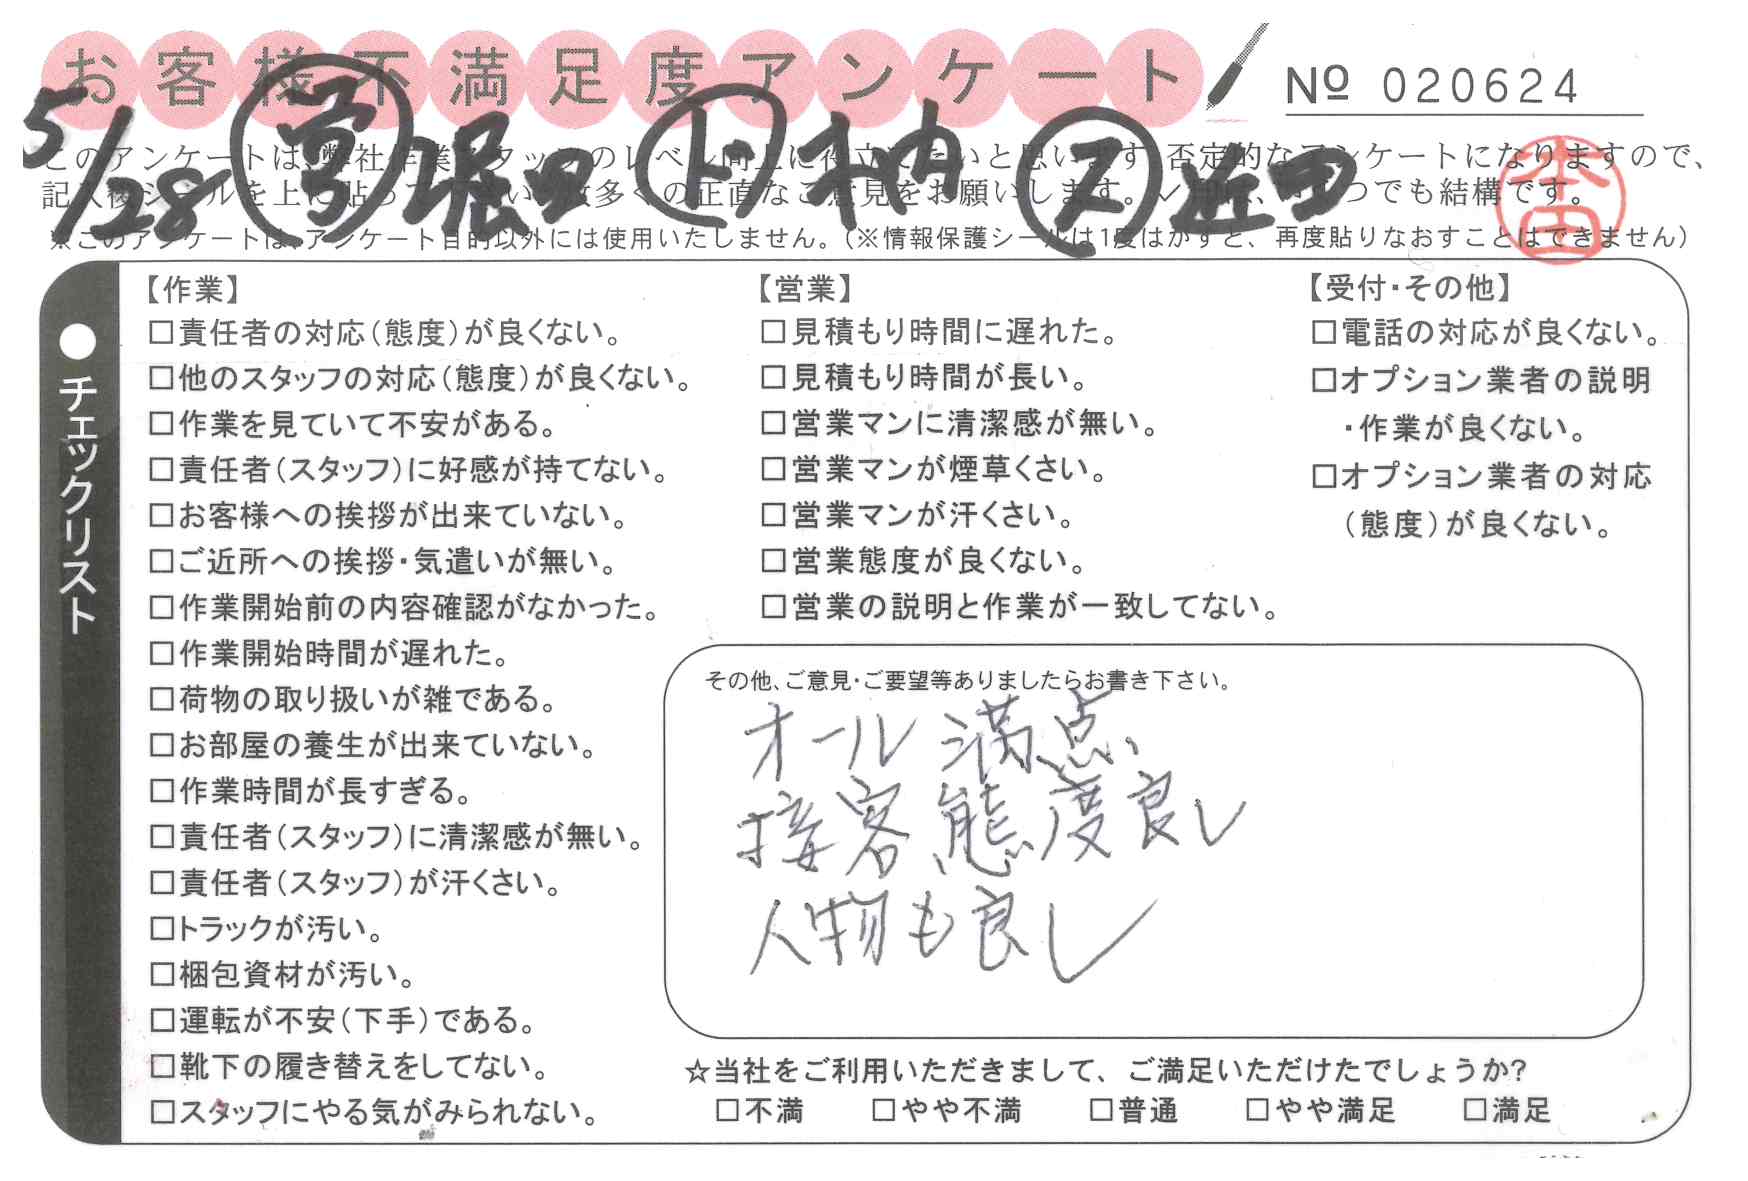 お客様不満足度アンケート
№ 020624
5/28 営 堀田 ド 木内 ス 近田
このアンケートは、弊社作業スタッフのレベル向上に役立てたいと思います。否定的なアンケートになりますので、
記入後シールを上に貼って下さい。数多くの正直なご意見をお願いします。✓印は、いくつでも結構です。
※このアンケートは、アンケート目的以外には使用いたしません。(※情報保護シールは1度はがすと、再度貼りなおすことはできません)
本田
●チェックリスト
【作業】
□責任者の対応(態度)が良くない。
□他のスタッフの対応(態度)が良くない。
□作業を見ていて不安がある。
□責任者(スタッフ)に好感が持てない。
□お客様への挨拶が出来ていない。
□ご近所への挨拶・気遣いが無い。
□作業開始前の内容確認がなかった。
□作業開始時間が遅れた。
□荷物の取り扱いが雑である。
□お部屋の養生が出来ていない。
□作業時間が長すぎる。
□責任者(スタッフ)に清潔感が無い。
□責任者(スタッフ)が汗くさい。
□トラックが汚い。
□梱包資材が汚い。
□運転が不安(下手)である。
□靴下の履き替えをしてない。
□スタッフにやる気がみられない。
【営業】
□見積もり時間に遅れた。
□見積もり時間が長い。
□営業マンに清潔感が無い。
□営業マンが煙草くさい。
□営業マンが汗くさい。
□営業態度が良くない。
□営業の説明と作業が一致してない。
【受付・その他】
□電話の対応が良くない。
□オプション業者の説明
・作業が良くない。
□オプション業者の対応
(態度)が良くない。
その他、ご意見・ご要望等ありましたらお書き下さい。
オール満点、
接客態度良し
人物も良し
☆当社をご利用いただきまして、ご満足いただけたでしょうか?
□不満 □やや不満 □普通 □やや満足 □満足